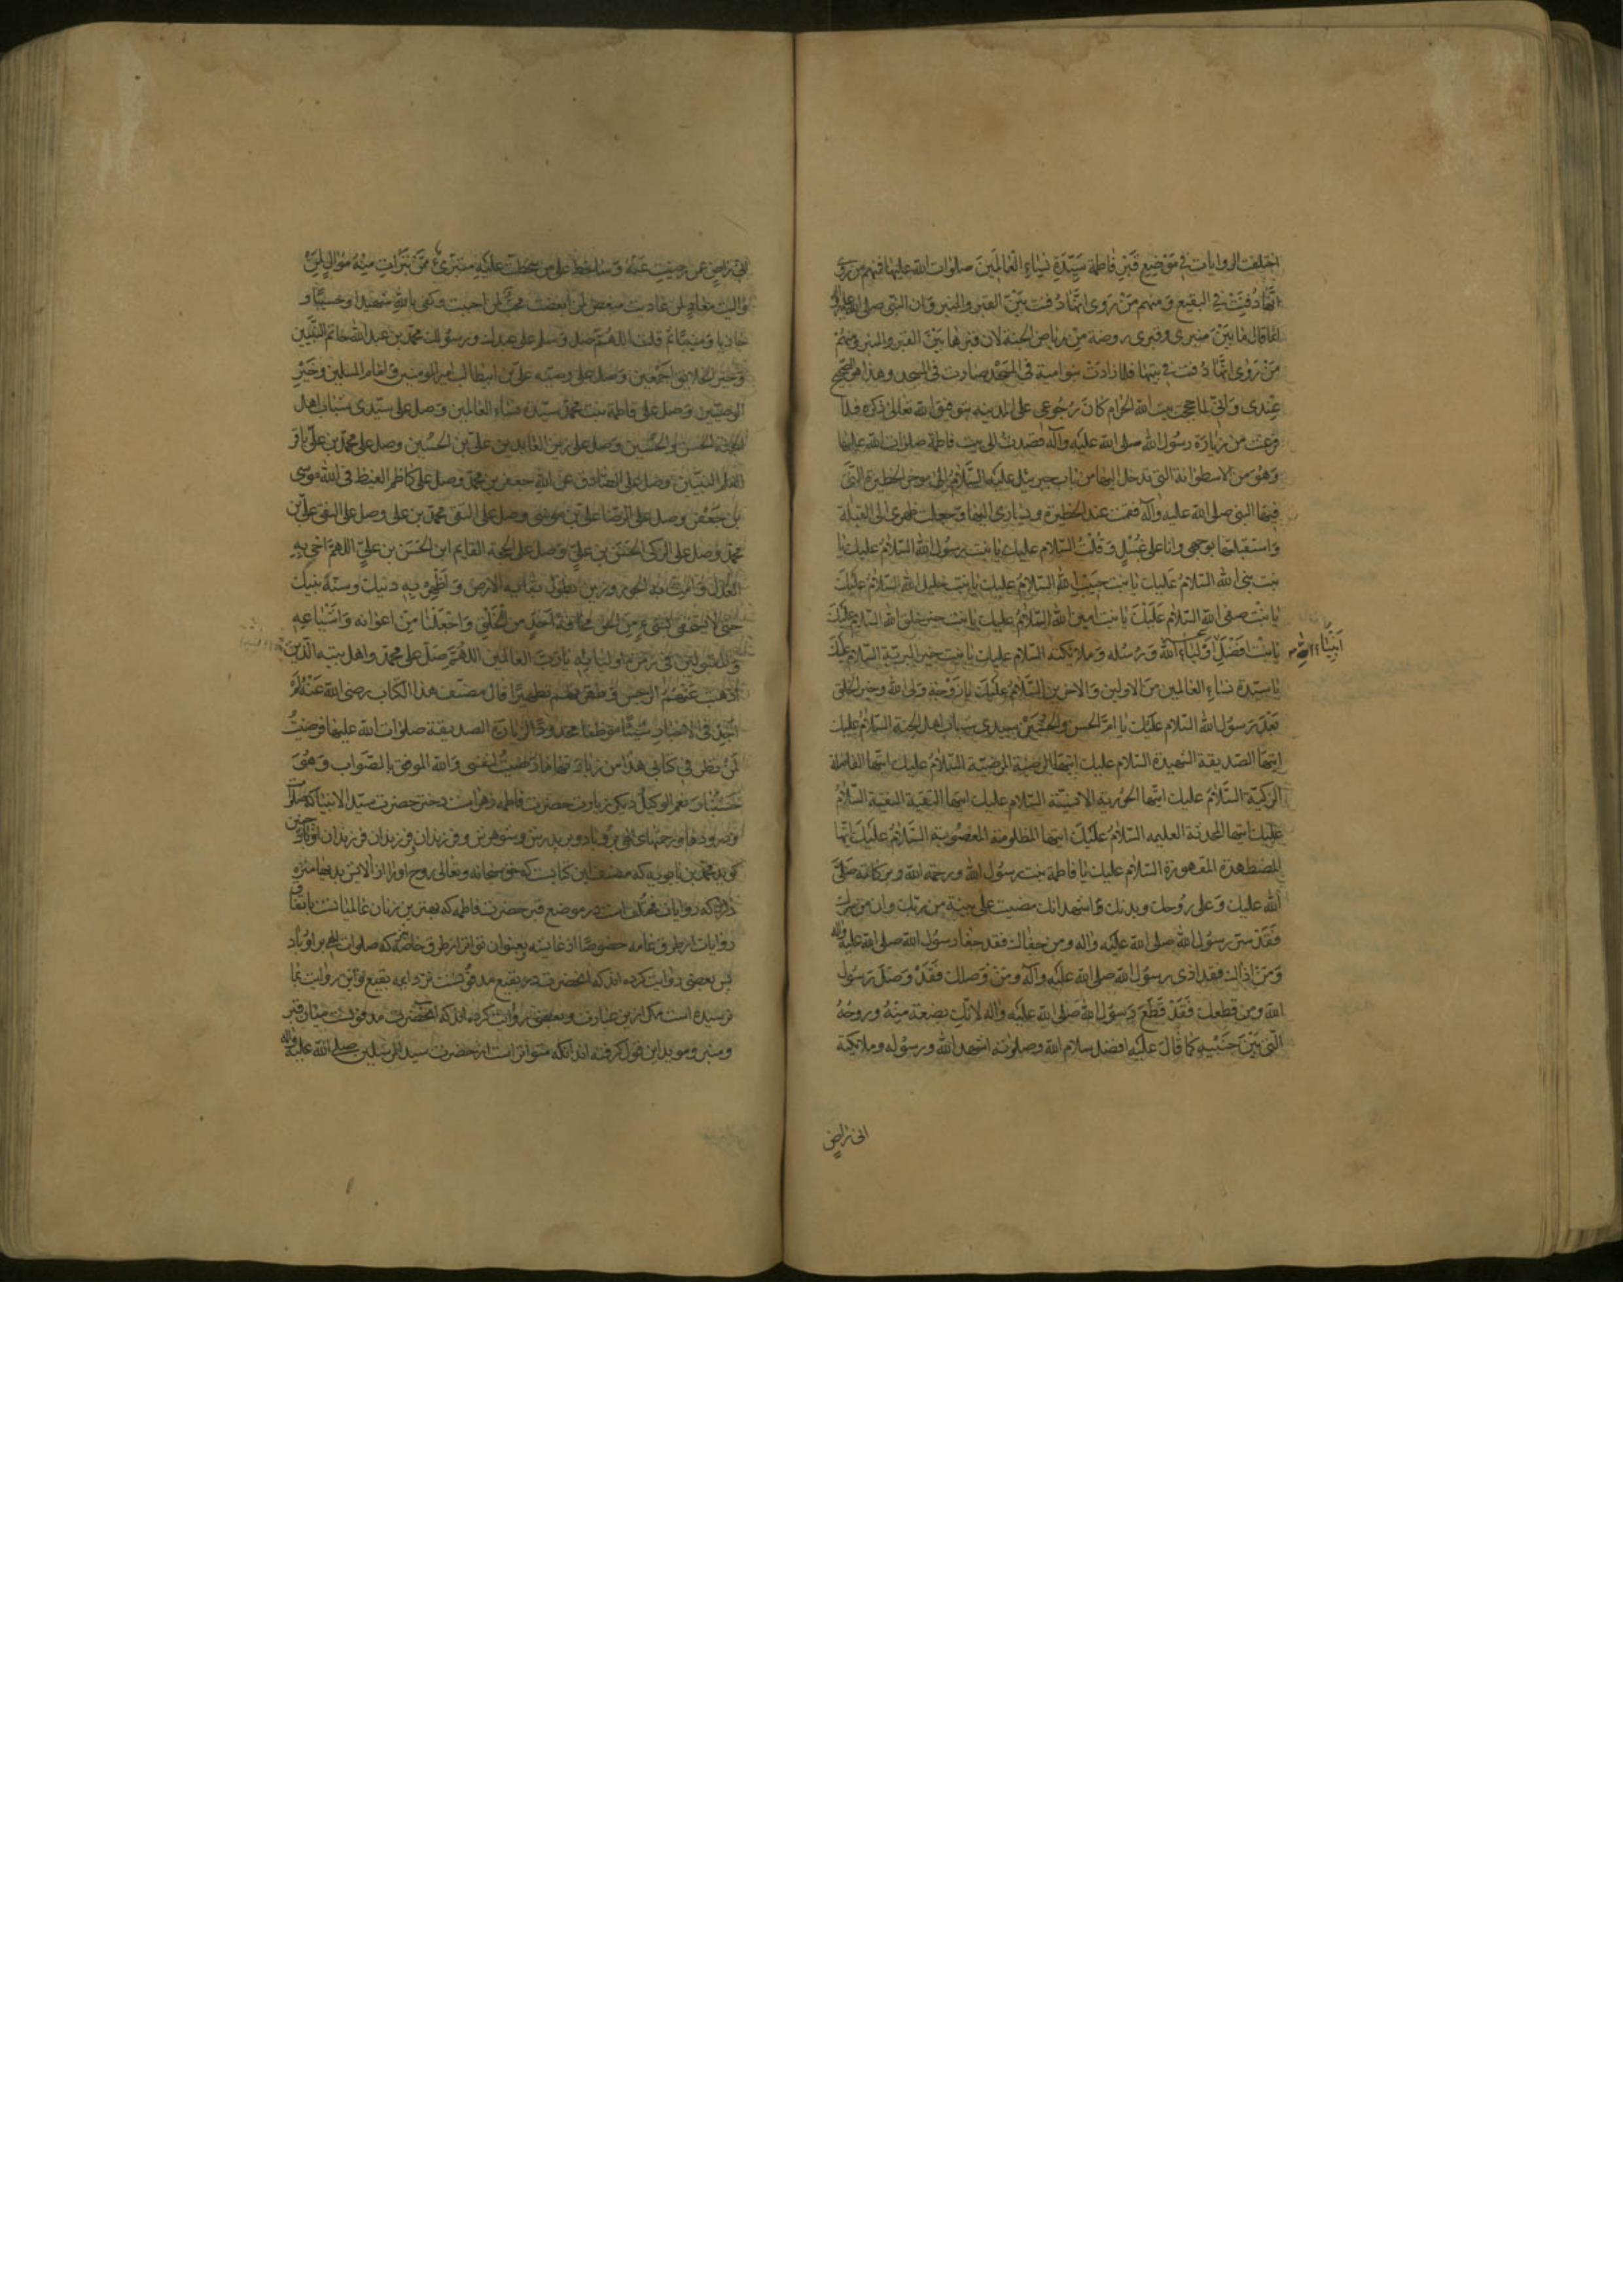 اختلفت الروایات فی موضع قبر فاطمة سیّدة نساء العالمین صلوات الله علیها فمنهم من روی
انّها دفنت فی البقیع و منهم من روی انّها دفنت بین القبر والمنبر و ان النبی صلی الله علیه و آله
انما قال ما بین منبری و قبری روضة من ریاض الجنة لان قبرها بین القبر والمنبر و منهم
من روی انّها دفنت فی بیتها فلما زادت بنو امیة فی المسجد صارت فی المسجد و هذا هو الصحیح
عندی و انی لما حججت بیت الله الحرام کان رجوعی علی المدینه بتوفیق الله تعالی ذکره فلما
فرغت من زیارة رسول الله صلی الله علیه وآله قصدت الی بیت فاطمة صلوات الله علیها
وهو من الاسطوانة التی تدخل الیها من باب جبرئیل علیه السلام الی مؤخر الحظیرة التی
فیها النبی صلی الله علیه وآله فقمت عند الحظیرة و یساری الیها و جعلت ظهری الی القبلة
واستقبلتها بوجهی وانا علی غسل و قلت السلام علیك یا بنت رسول الله السلام علیك یا
بنت نبی الله السلام علیك یا بنت حبیب الله السلام علیك یا بنت خلیل الله السلام علیك
یا بنت صفی الله السلام علیك یا بنت امین الله السلام علیك یا بنت خیر خلق الله السلام علیك
یا بنت افضل انبیاء الله و رسله و ملائکته السلام علیك یا بنت خیر البریة السلام علیك
یا سیّدة نساء العالمین من الاولین و الاخرین السلام علیك یا زوجة ولی الله و خیر الخلق
بعد رسول الله السلام علیك یا امّ الحسن والحسین سیدی شباب اهل الجنة السلام علیك
ایتها الصدیقة الشهیدة السلام علیك ایتها الرضیة المرضیة السلام علیك ایتها الفاضلة
الزکیّة السلام علیك ایتها الحوریة الانسیّة السلام علیك ایتها التقیة النقیة السلام
علیك ایتها المحدثة العلیمه السلام علیك ایتها المظلومة المغصوبة السلام علیك ایتها
المضطهدة المقهورة السلام علیك یا فاطمة بنت رسول الله و رحمة الله و برکاته صلّی
الله علیك و علی روحك و بدنك و اشهد انك مضیت علی بینة من ربك وان من سرك
فقد سر رسول الله صلی الله علیه واله و من جفاك فقد جفا رسول الله صلی الله علیه واله
و من اذاك فقد اذی رسول الله صلی الله علیه وآله و من وصلك فقد وصل رسول
الله و من قطعك فقد قطع رسول الله صلی الله علیه واله لانك بضعة منه و روحه
التی بین جنبیه کما قال علیه افضل سلام الله وصلواته اشهد الله و رسوله و ملائکته
انی راض
انی راض عمن رضیت عنه و ساخط علی من سخطت علیه متبرئ ممن تبرات منه موال لمن
والیت معاد لمن عادیت مبغض لمن ابغضت محب لمن احببت و کفی بالله شهیدا و حسیبا و
جازیا و مثیبا ثم قلت اللهم صل وسلم علی عبدك و رسولك محمد بن عبد الله خاتم النبیین
و خیر الخلایق اجمعین و صل علی وصیه علی بن ابیطالب امیر المومنین و امام المسلمین و خیر
الوصیین و صل علی فاطمة بنت محمد سیدة نساء العالمین و صل علی سیدی شباب اهل
الجنة الحسن والحسین و صل علی زین العابدین علی بن الحسین و صل علی محمد بن علی باقر
العلم النبیین و صل علی الصادق عن الله جعفر بن محمد و صل علی کاظم الغیظ فی الله موسی
بن جعفر و صل علی الرضا علی بن موسی و صل علی التقی محمد بن علی و صل علی النقی علی بن
محمد و صل علی الزکی الحسن بن علی و صل علی الحجة القایم ابن الحسن بن علی اللهم احی به
العدل و امت به الجور و زین بطول بقائه الارض و اظهر به دینك و سنة نبیك
حتی لا یستخفی بشیء من الحق مخافة احد من الخلق و اجعلنا من اعوانه و اشیاعه
والمقبولین فی زمرة اولیائه یا رب العالمین اللهم صل علی محمد واهل بیته الذین
اذهبت عنهم الرجس و طهرتهم تطهیرا قال مصنف هذا الکتاب رضی الله عنه لم
اجد فی الاخبار شیئا موظفا محدودا لزیارة الصدیقة صلوات الله علیها فرضیت
لمن نظر فی کتابی هذا من زیارتها ما رضیت لنفسی والله الموفق بالصواب و هو
حسبنا و نعم الوکیل دیکر زیارت حضرت فاطمه زهراست دختر حضرت سید الانبیا که صلوات
و درودها و رحمتهای الهی برو باد و بر پدرش و شوهرش و فرزندان و فرزندان فرزندان او باد چنین
کوید محمد بن بابویه که مصنف این کتابست که حق سبحانه و تعالی روح او را از آلایش بدیها منزه
دارد که روایات مختلف است در موضع قبر حضرت فاطمه که بهترین زنان عالمیانست باتفاق
روایات از طرق عامه خصوصا از عایشه بعنوان تواتر از طرق خاصه که صلوات الهی بر او باد
پس بعضی روایت کرده اند که انحضرت در بقیع مدفونست نزد ایمه بقیع و این روایت بما
نرسیده است مکر ازین عبارت و بعضی روایت کرده اند که انحضرت مدفونست میان قبر
و منبر و موید این قول کرفته اند انکه متواتر است از حضرت سید المرسلین صلی الله علیه واله